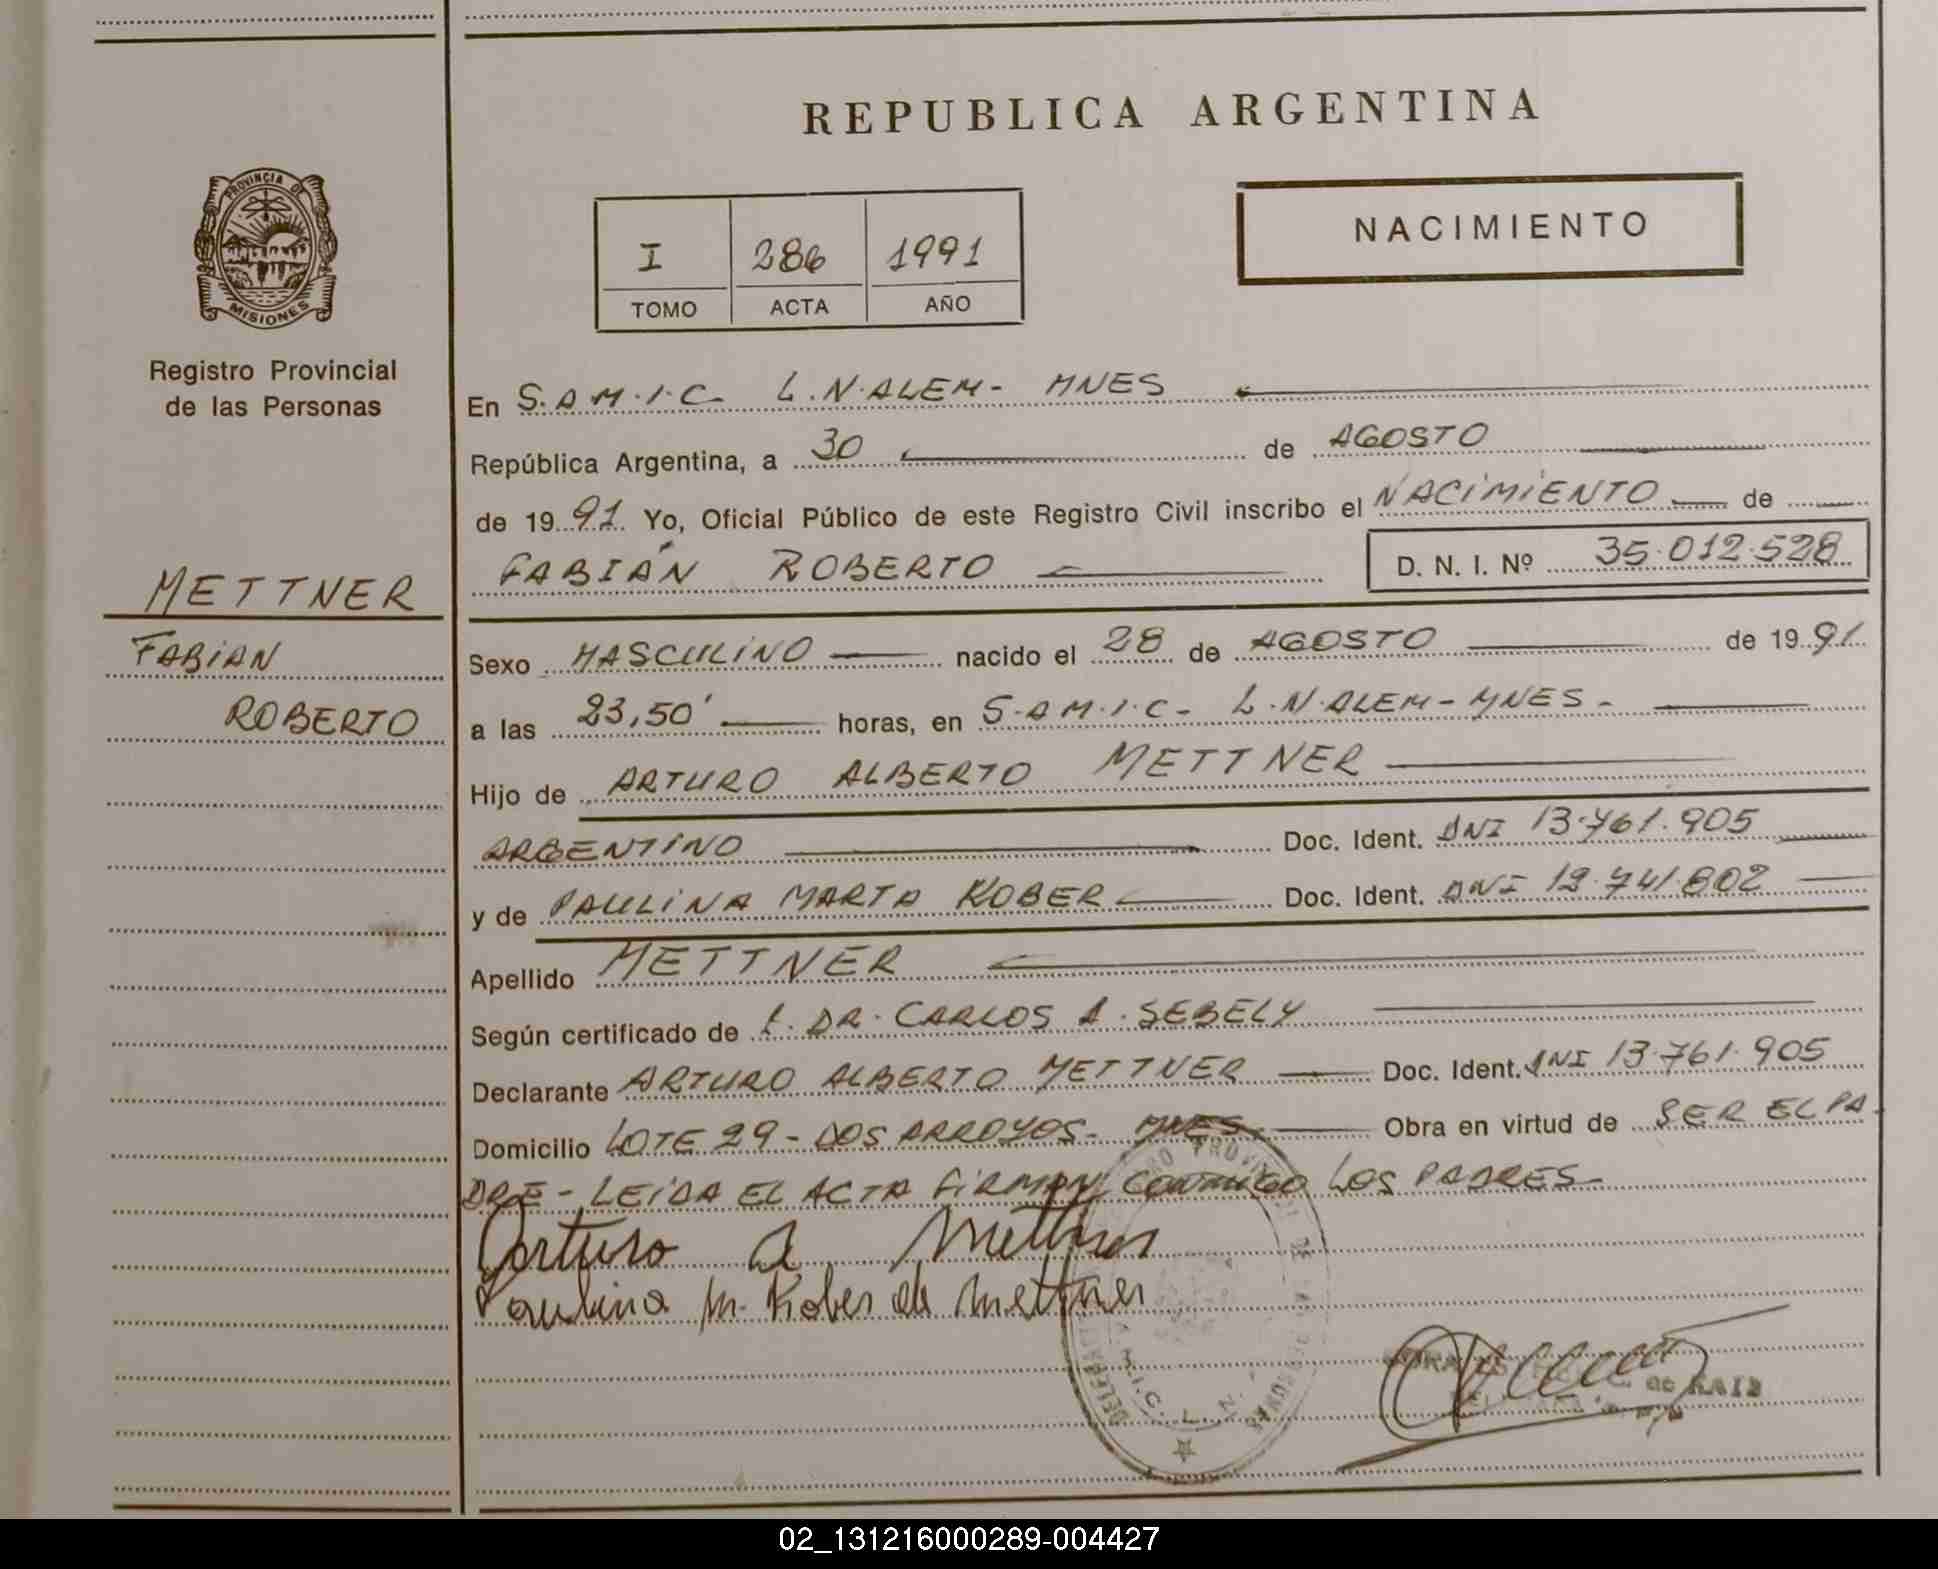 REPUBLICA ARGENTINA
PROVINCIA DE
MISIONES
Registro Provincial
de las Personas
I 286 1991
TOMO ACTA AÑO
NACIMIENTO
En S.A.M.I.C. L.N.ALEM- MNES
República Argentina, a 30 de AGOSTO
de 1991 Yo, Oficial Público de este Registro Civil inscribo el NACIMIENTO de
FABIÁN ROBERTO D. N. I. Nº 35.012.528
METTNER
FABIAN
ROBERTO
Sexo MASCULINO nacido el 28 de AGOSTO de 1991
a las 23,50' horas, en S.A.M.I.C- L.N.ALEM-MNES-
Hijo de ARTURO ALBERTO METTNER
ARGENTINO Doc. Ident. DNI 13.761.905
y de PAULINA MARTA KOBER Doc. Ident. DNI 12.741.802
Apellido METTNER
Según certificado de DR. CARLOS A. SEBELY
Declarante ARTURO ALBERTO METTNER Doc. Ident. DNI 13.761.905
Domicilio LOTE 29- DOS ARROYOS- MNES Obra en virtud de SER EL PA-
DRE- LEIDA EL ACTA FIRMAN CONMIGO LOS PADRES-
Arturo A Mettner
Paulina M. Kober de Mettner
de RAIS
02_131216000289-004427